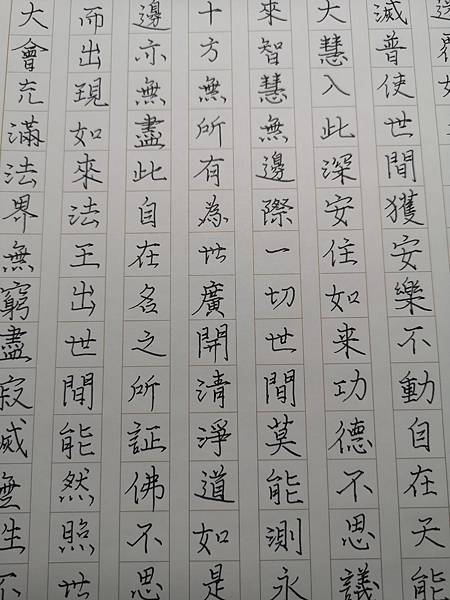 滅普使世間獲安樂不動自在天能
大慧入此深安住如來功德不思議
來智慧無邊際一切世間莫能測永
十方無所有為世廣開清淨道如是
邊亦無盡此自在名之所証佛不思
而出現如來法王出世間能然照世
大會充滿法界無窮盡寂滅無生不